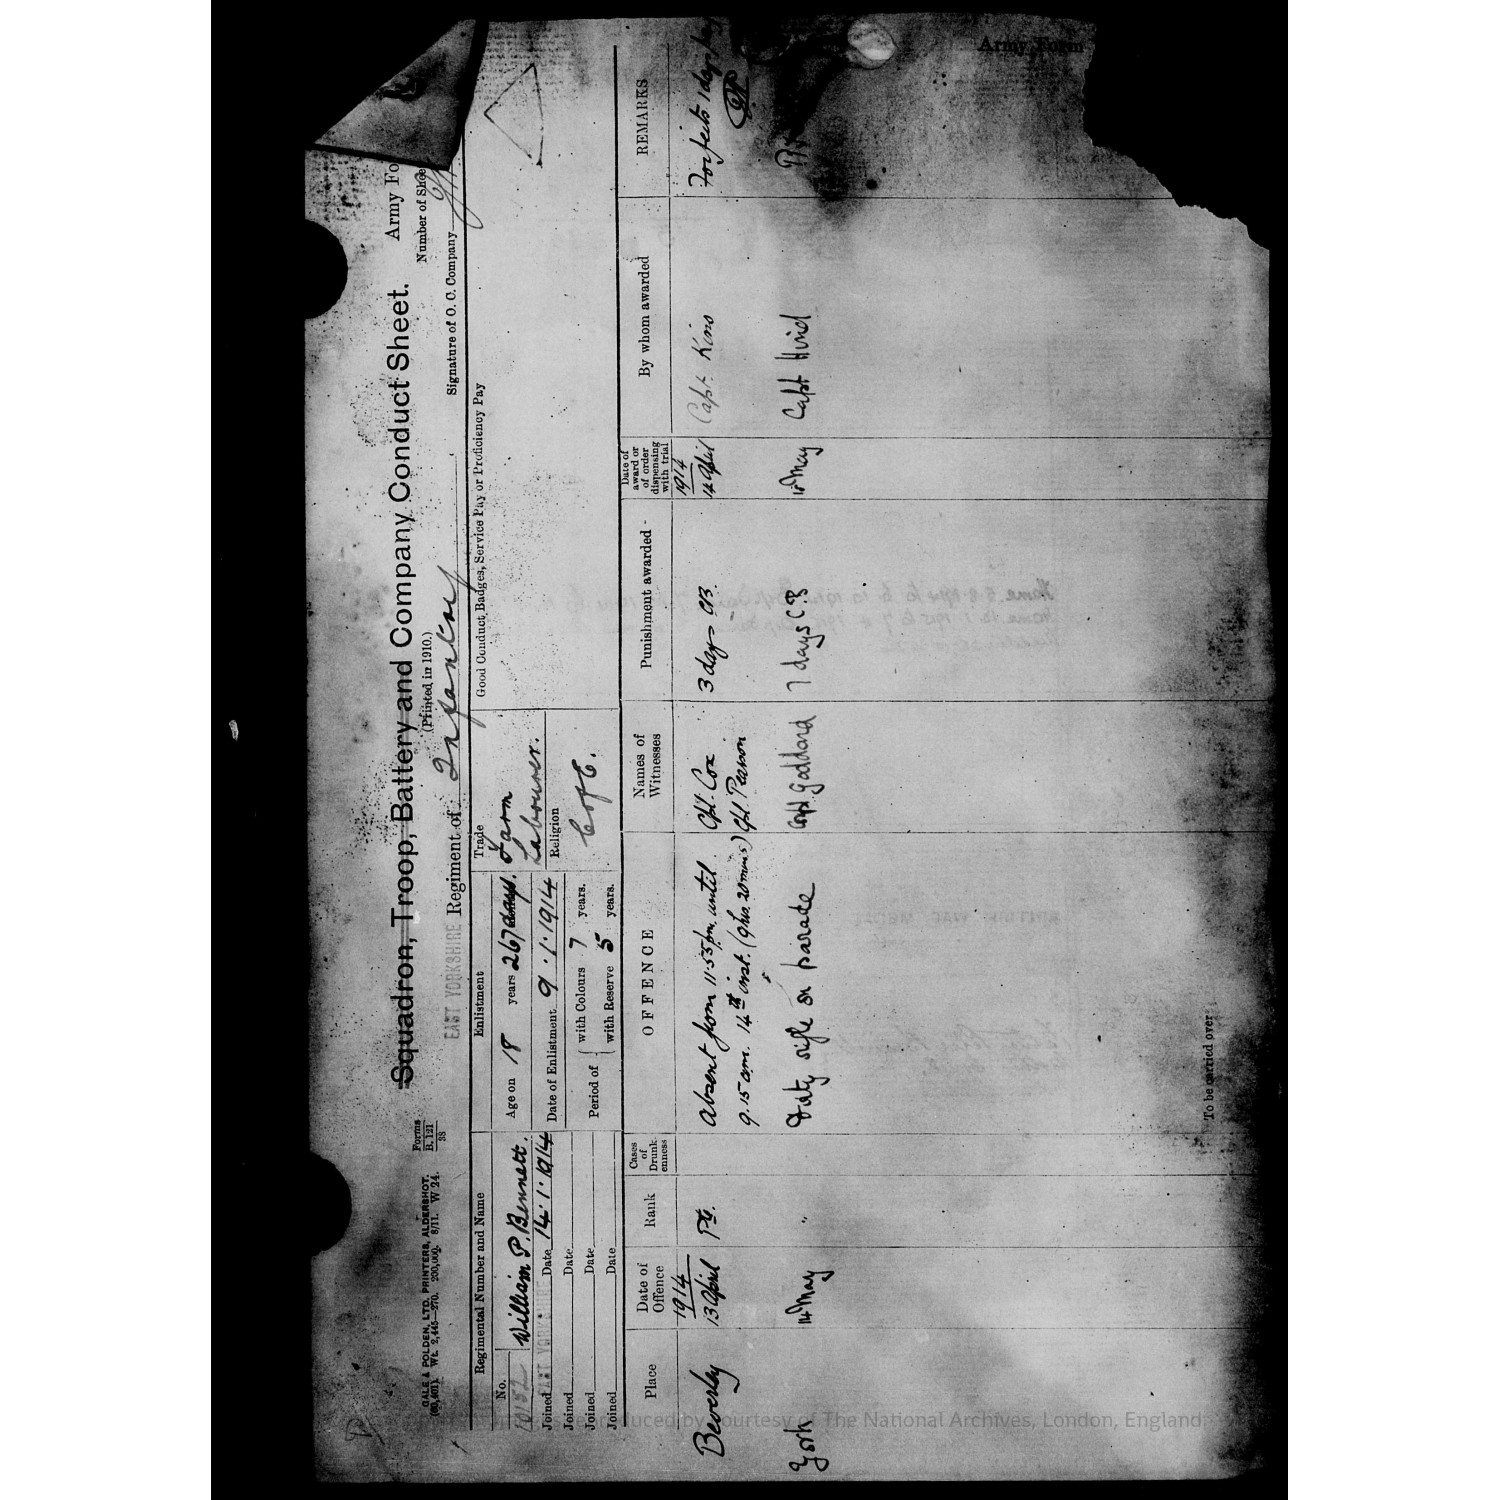 Army Form
Squadron, Troop, Battery and Company Conduct Sheet.
Army Fo
(Printed in 1910.)
Number of Shee
GALE & POLDEN, LTD. PRINTERS, ALDERSHOT.
Wt. 2,445—270. 200,000. 8/11. W 24.
Forms
B. 121
38
EAST YORKSHIRE Regiment of Infantry
Signature of O. C. Company
Regimental Number and Name
Enlistment
Trade
Good Conduct Badges, Service Pay or Proficiency Pay
No.
William P. Bennett.
Age on 18 years 267 days.
Farm
Labourer.
Joined EAST YORKSHIRE Date 14.1.1914
Date of Enlistment 9.1.1914
Religion
C of E.
Joined Date
Joined Date
Joined Date
Period of
with Colours 7 years.
with Reserve 5 years.
Place
Date of Offence
Rank
Cases of Drunkenness
OFFENCE
Names of Witnesses
Punishment awarded
Date of award or of order dispensing with trial
By whom awarded
REMARKS
1914
1914
Beverley
13 April
Pte.
Absent from 11.55 pm until
9.15 am. 14th inst. (9 hrs. 20 mins)
Cpl. Cox
Cpl. Pearson
3 days CB.
14 April
Capt. Kino
Forfeits 1 day's pay
York
14 May
"
Dirty rifle on parade
Corpl Goddard
7 days C.B
15 May
Capt Hind
To be carried over
Images reproduced by courtesy of The National Archives, London, England.